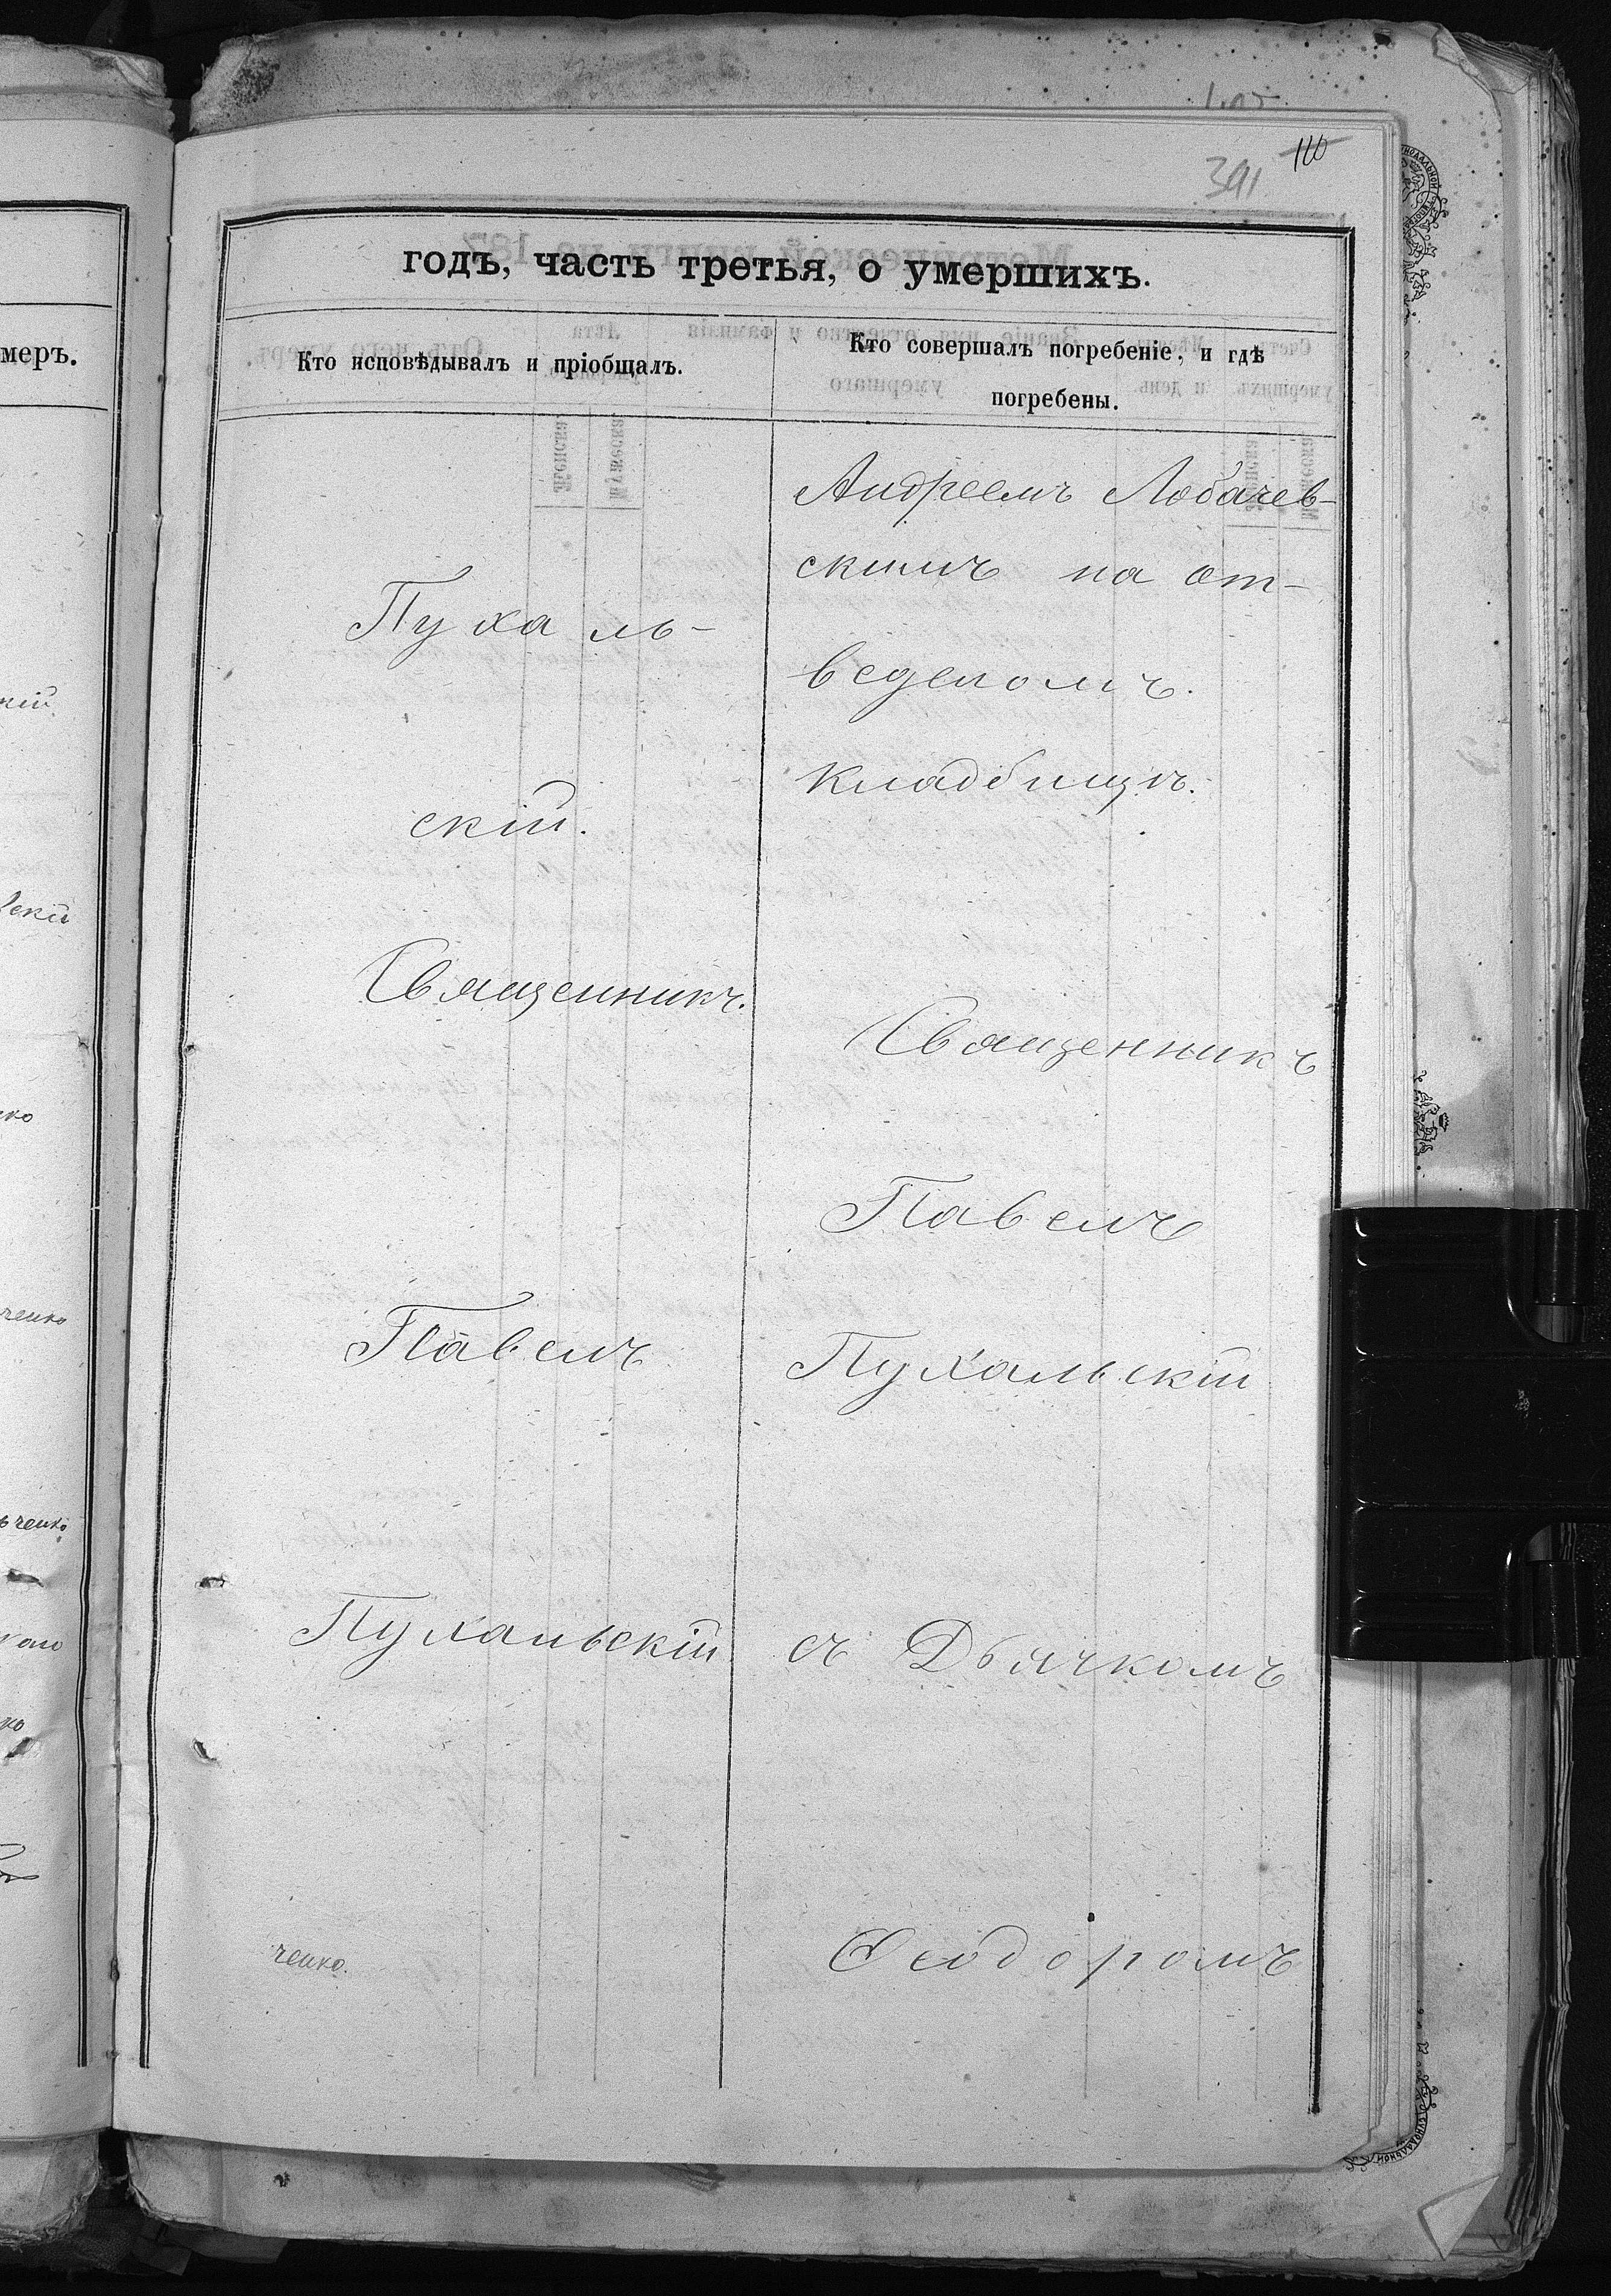 391
110
годъ, часть третья, о умершихъ.
Кто исповѣдывалъ и пріобщалъ.
Кто совершалъ погребеніе, и гдѣ
погребены.
Пухаль-
скій.
Священникъ.
Павелъ
Пухальскій
ченко.
Андреемъ Лобачев-
скимъ на от-
веденомъ.
Кладбищѣ.
Священникъ
Павелъ
Пухальскій
съ Дьячкомъ
Ѳеодоромъ
меръ.
кій
вскій
ко
ченко
ьченко
ко